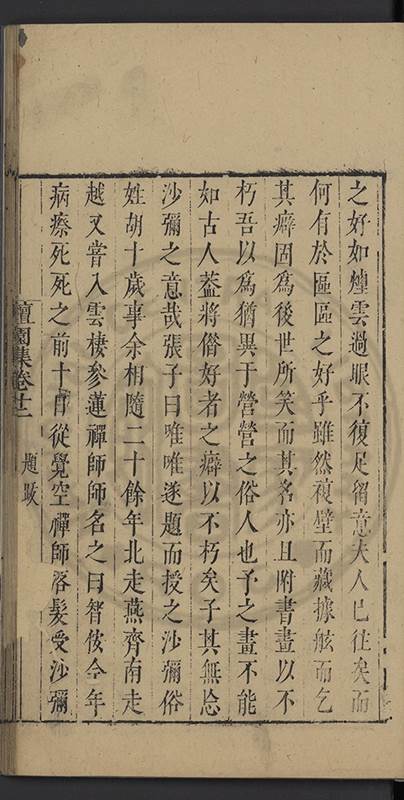 之好如煙雲過眼不復足留意夫人已往矣而
何有於區區之好乎雖然複壁而藏據舷而乞
其癖固為後世所笑而其名亦且附書畫以不
朽吾以為猶異于營營之俗人也予之畫不能
如古人葢將俻好者之癖以不朽矣子其無忘
沙彌之意哉張子曰唯唯遂題而授之沙彌俗
姓胡十歲事余相隨二十餘年北走燕齊南走
越又甞入雲棲參蓮禪師師名之曰智伩今年
病瘵死死之前十日從覺空禪師落髮受沙彌
檀園集卷十二
題跋